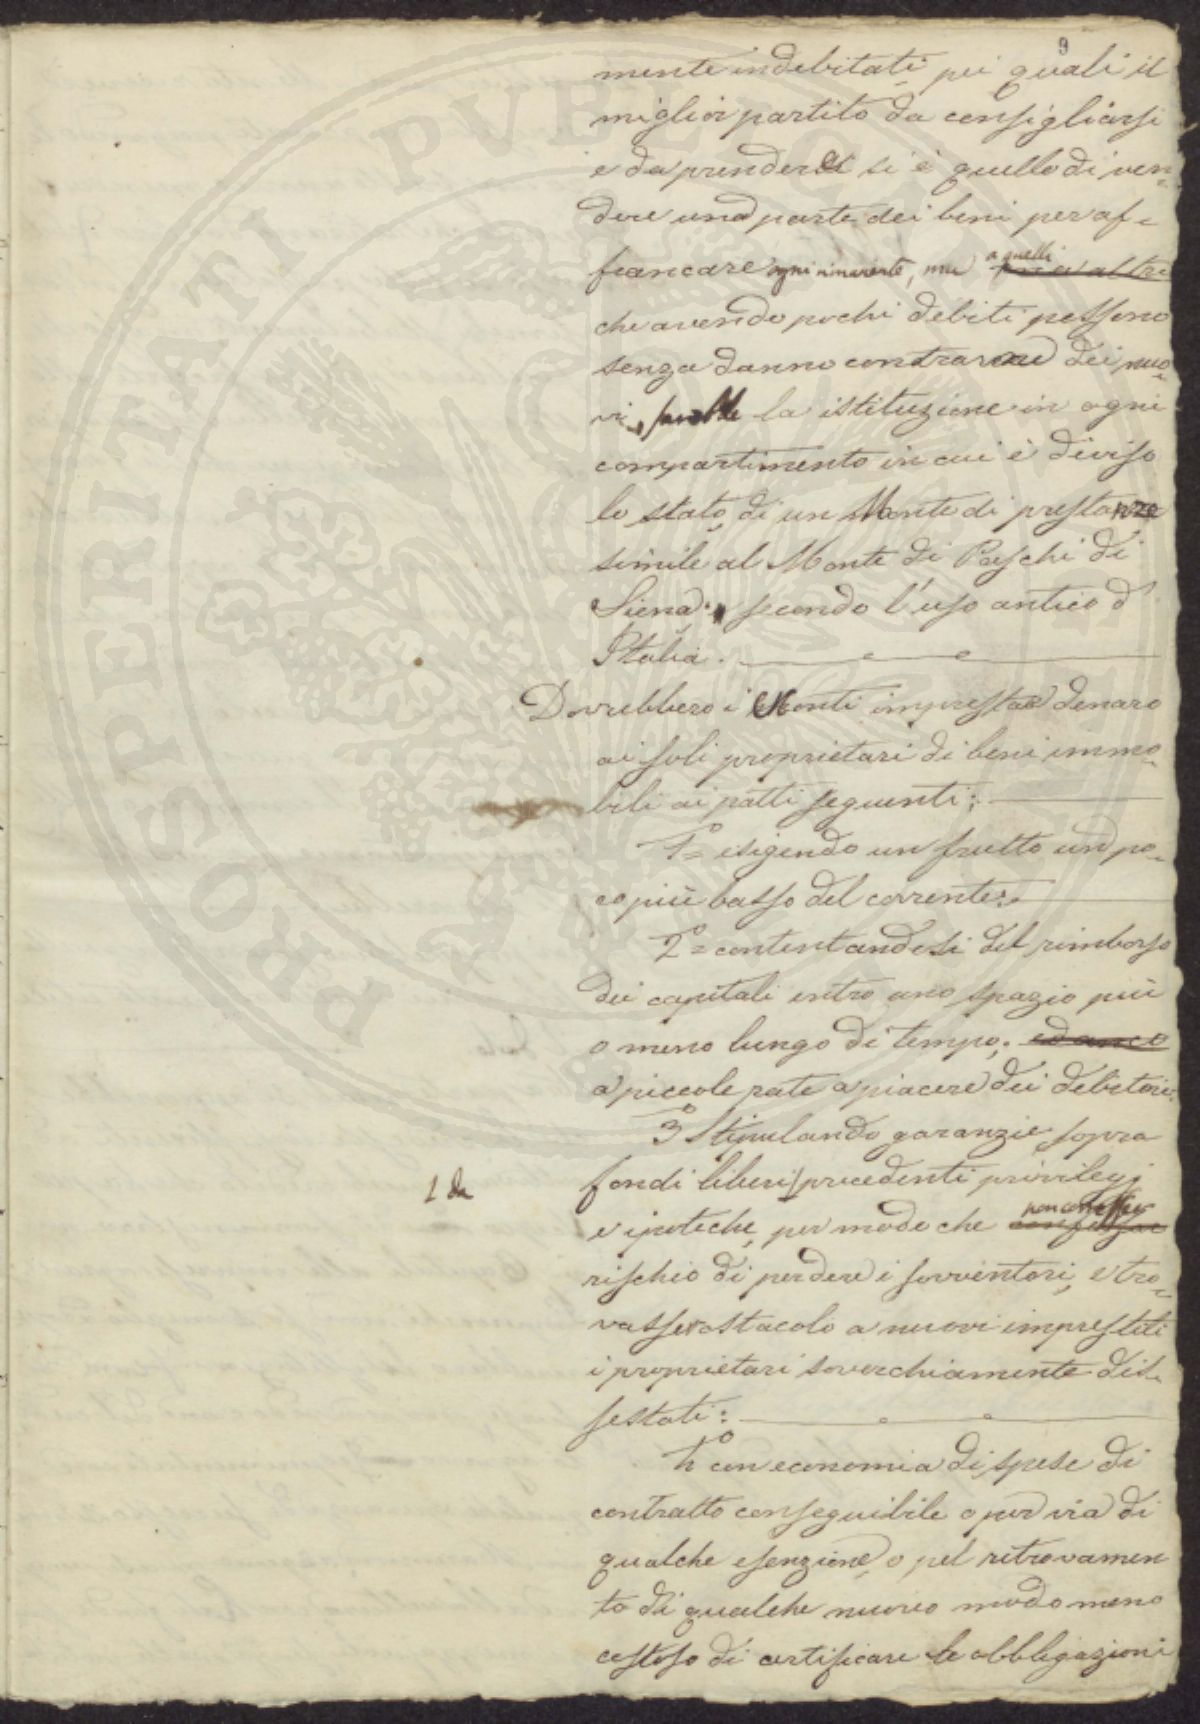 9
mente indebitati, pei quali il
miglior partito da consigliarsi
e da prendersi si è quello di ven-
dere una parte dei beni per af-
francare ogni rimanente, ma a quelli
che avendo pochi debiti possono
senza danno contrarne dei nuo-
vi, sarebbe la istituzione in ogni
compartimento in cui è diviso
lo stato, di un Monte di prestanze
simile al Monte di Paschi di
Siena, secondo l'uso antico d'
Italia.
Dovrebbero i Monti imprestar denaro
ai soli proprietari di beni immo-
bili ai patti seguenti:
1º = esigendo un frutto un po-
co più basso del corrente:
2º = contentandosi del rimborso
dei capitali entro uno spazio più
o meno lungo di tempo, ed anco
a piccole rate a piacere dei debitori.
3º Stipulando garanzie sopra
fondi liberi / precedenti privilegj
L da
e ipoteche, per modo che non corresser
rischio di perdere i sovventori, e tro-
vassero ostacolo a nuovi imprestiti
i proprietari soverchiamente dis-
sestati:
4º con economia di spese di
contratto conseguibile o per via di
qualche esenzione, o pel ritrovamen
to di qualche nuovo modo meno
costoso di certificare le obbligazioni
PROSPERITATI PVBLICAE